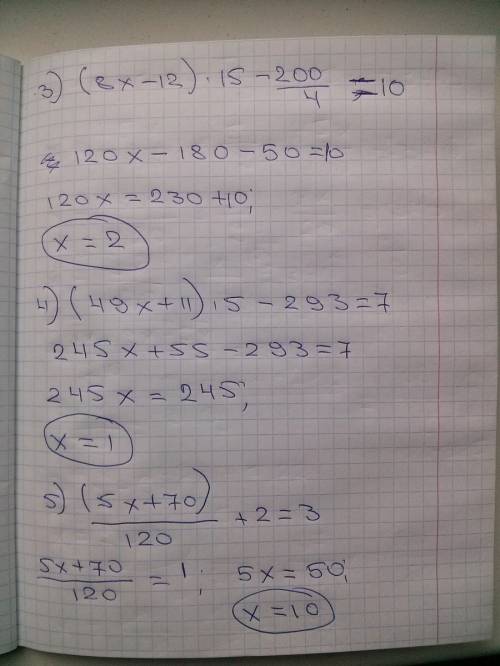 3) (8x-12)·15-200/4=10
120x-180-50=10
120x=230+10;
x=2
4) (49x+11)·5-293=7
245x+55-293=7
245x=245;
x=1
5) (5x+70)/120+2=3
5x+70/120=1; 5x=50;
x=10